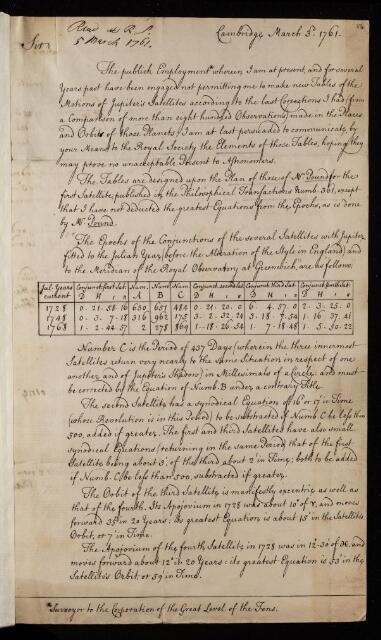 Read at R. S.
5 March 1761.
Cambridge March 3d. 1761.
Sir
The publick Employment* wherein I am at present, and for several
Years past have been engaged not permitting me to make new Tables of the
Motions of Jupiter's Satellites according to the last Corrections I had (from
a Comparison of more than eight hundred Observations) made in the Places
and Orbits of those Planets; I am at last persuaded to communicate, by
your Means to the Royal Society the Elements of those Tables, hoping they
may prove no unacceptable Present to Astronomers.
The Tables are designed upon the Plan of those of Mr Pound for the
first Satellite published in the Philosophical Transactions Numb. 361, except
that I have not deducted the greatest Equations from the Epochs, as is done
by Mr Pound.
The Epochs of the Conjunctions of the several Satellites with Jupiter
fitted to the Julian Year (before the Alteration of the Style in England) and
to the Meridian of the Royal Observatory at Greenwich, are as follows.
Jul. Years Conjunct. first Sat. Num. Num. Num. Conjunct. second Sat. Conjunct. third Sat. Conjunct. fourth Sat.
current D H ' " A B C D H ' " D H ' " D H ' "
1728 0. 21. 58. 16 630 657
1748 0. 3. 7. 18 316 962 175 3. 2. 32. 24 3. 18. 7. 54 1. 16. 37. 41
1768 1. 2. 44. 57 2 278 869 1. 18. 26. 54 1. 7. 18. 48 1. 5. 50. 22
Number C is the Period of 437 Days (wherein the three innermost
Satellites return very nearly to the same Situation in respect of one
another and of Jupiter's Shadow) in Millesimals of a Circle: and must
be corrected by the Equation of Numb. B under a contrary Title.
The second Satellite has a synodical Equation of 16' or 17' in Time
(whose Revolution is in this Period) to be subtracted if Numb. C be less than
500, added if greater. The first and third Satellites have also small
synodical Equations (returning in the same Period) that of the first
Satellite being about 3', of the third about 2' in Time; both to be added
if Numb. C be less than 500, subtracted if greater.
The Orbit of the third Satellite is manifestly excentric as well as
that of the fourth. Its Apojovium in 1728 was about 10° of ♈, and moves
forward 35° in 20 Years; its greatest Equation is about 15' in the Satellite's
Orbit, or 7' in Time.
The Apojovium of the fourth Satellite in 1728 was in 12°.30' of ♓, and
moves forward about 12° in 20 Years: its greatest Equation is 53' in the
Satellite's Orbit or 59' in Time.
*Surveyor to the Corporation of the Great Level of the Fens.